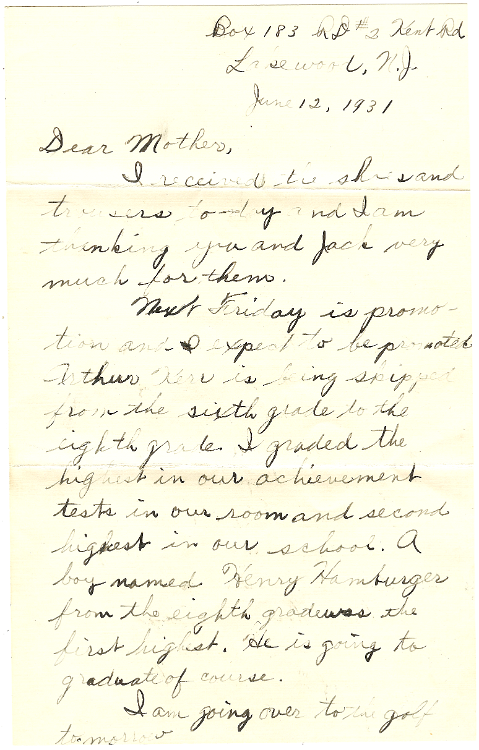 Box 183 RD #2 Kent Rd
Lakewood, N.J.
June 12, 1931
Dear Mother,
I received the shoes and
trousers to-day and I am
thanking you and Jack very
much for them.
Next Friday is promo-
tion and I expect to be promoted
Arthur Kerr is being skipped
from the sixth grade to the
eighth grade. I graded the
highest in our achievement
tests in our room and second
highest in our school. A
boy named Henry Hamburger
from the eighth grade was the
first highest. He is going to
graduate of course.
I am going over to the golf
tomorrow